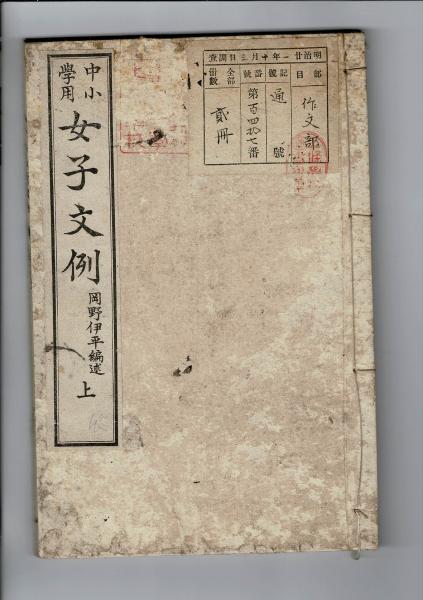 中小
學用
女子文例
岡野伊平編述
上
明治廿一年十月三日調查
部目
作文部
記號
通號
番號
第百四拾七番
全部冊數
貳冊